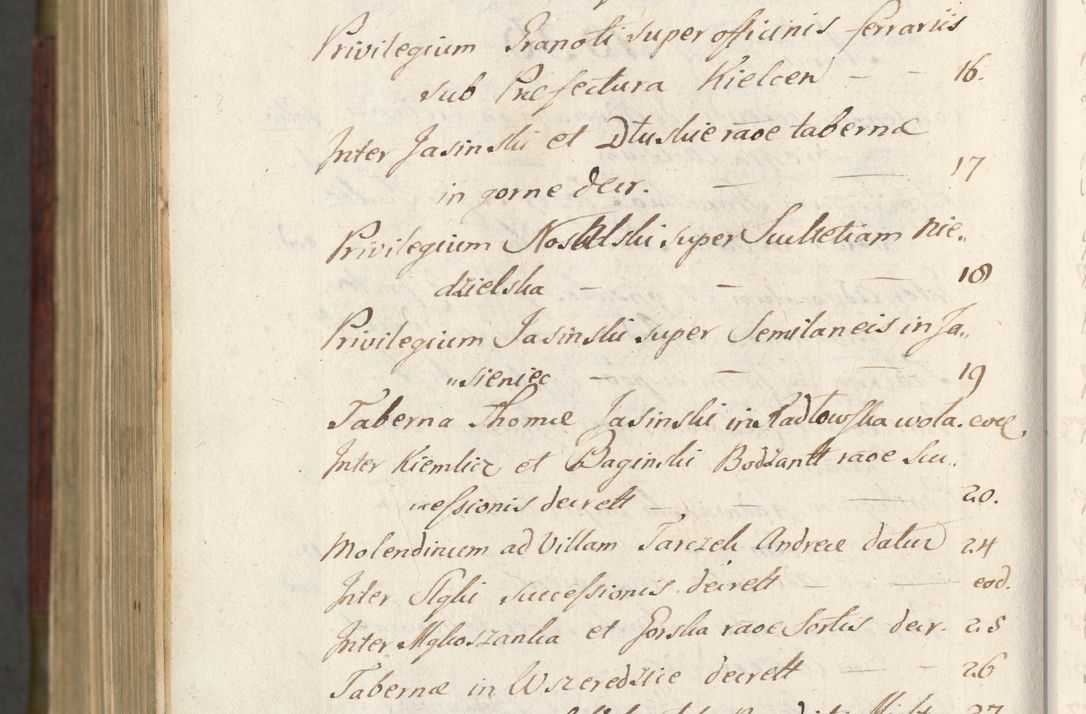 Privilegium Granoti super officinis ferrariis
sub Præfectura Kielcen - - 16.
Inter Jasinski et Dłuskie raõe tabernæ
in gorne decr. - - 17
Privilegium super Scultetiam Nie„
dzielska - - - 18
Privilegium Jasinski super Semilaneis in Ja„
„sieniec - - - 19
Taberna Thomæ Jasinski in Radłowska wola. eod.
Inter Kiemlicz et Baginski Bodzantt raõe Suc„
„cessionis decrett - - 20.
Molendinum ad Villam Tarczek Andreæ datur 24
Inter successionis decrett - - eod.
Inter et Gorska raõe Sortis decr. 25
Tabernæ in Wszeredzice decrett - - 26
27